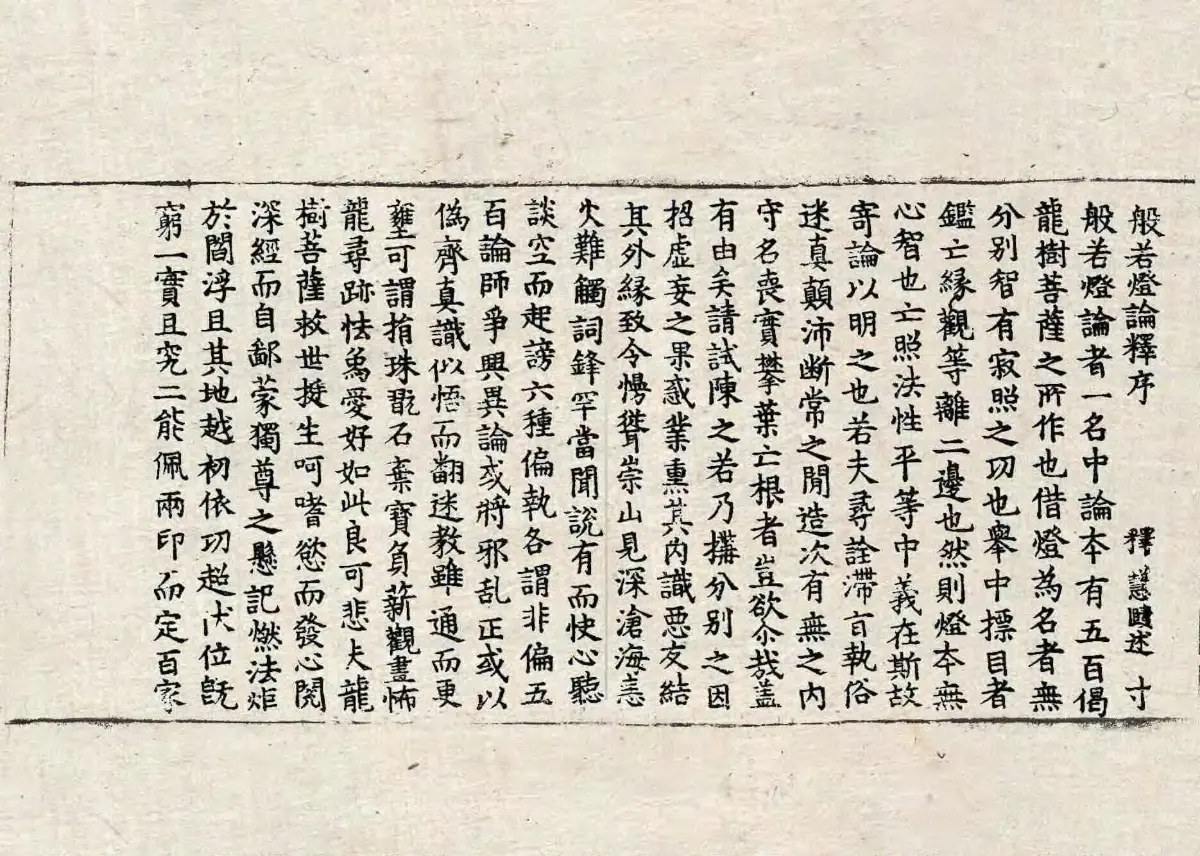 般若燈論釋序　釋慧賾述　寸
般若燈論者一名中論本有五百偈
龍樹菩薩之所作也借燈為名者無
分別智有寂照之功也舉中摽目者
鑑亡緣觀等離二邊也然則燈本無
心智也亡照法性平等中義在斯故
寄論以明之也若夫尋詮滯言執俗
迷真顛沛断常之閒造次有無之内
守名喪實攀葉亡根者豈欲尒哉盖
有由矣請試陳之若乃搆分別之因
招虛妄之果惑業熏其内識惡友結
其外緣致令慢聳崇山見深滄海恚
火難觸詞鋒罕當聞說有而快心聽
談空而起謗六種偏執各謂非偏五
百論師爭興異論或將邪乱正或以
僞齊真識似悟而翻迷教雖通而更
壅可謂捐珠翫石棄寶負薪觀畫怖
龍尋跡怯象愛好如此良可悲夫龍
樹菩薩救世挺生呵嗜慾而發心閱
深經而自鄙蒙獨尊之懸記燃法炬
於閻浮且其地越初依功超伏位旣
窮一實且究二能佩兩印而定百家